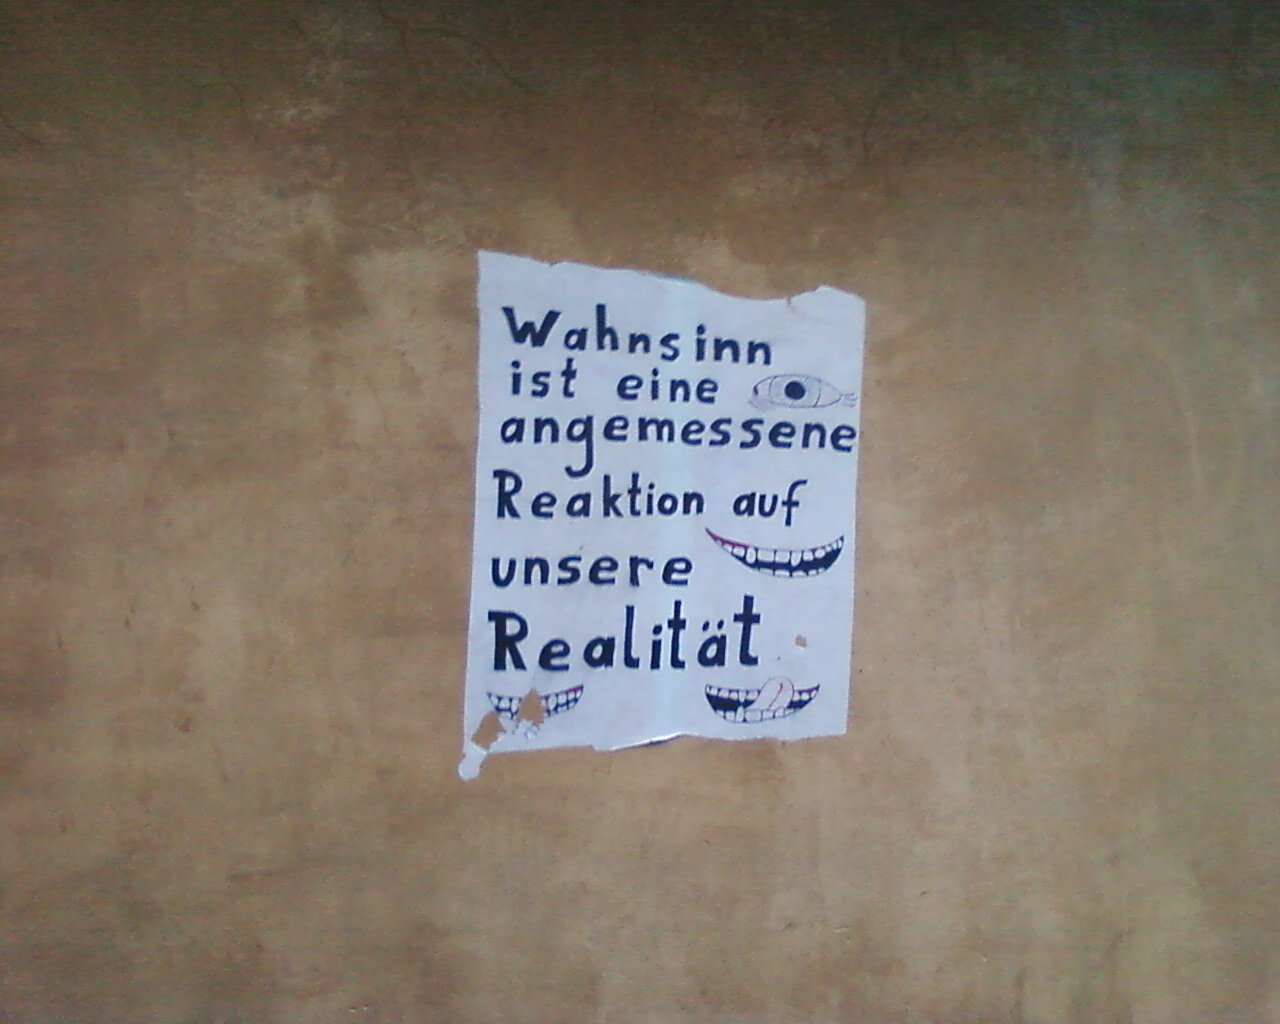 Wahnsinn
ist eine
angemessene
Reaktion auf
unsere
Realität